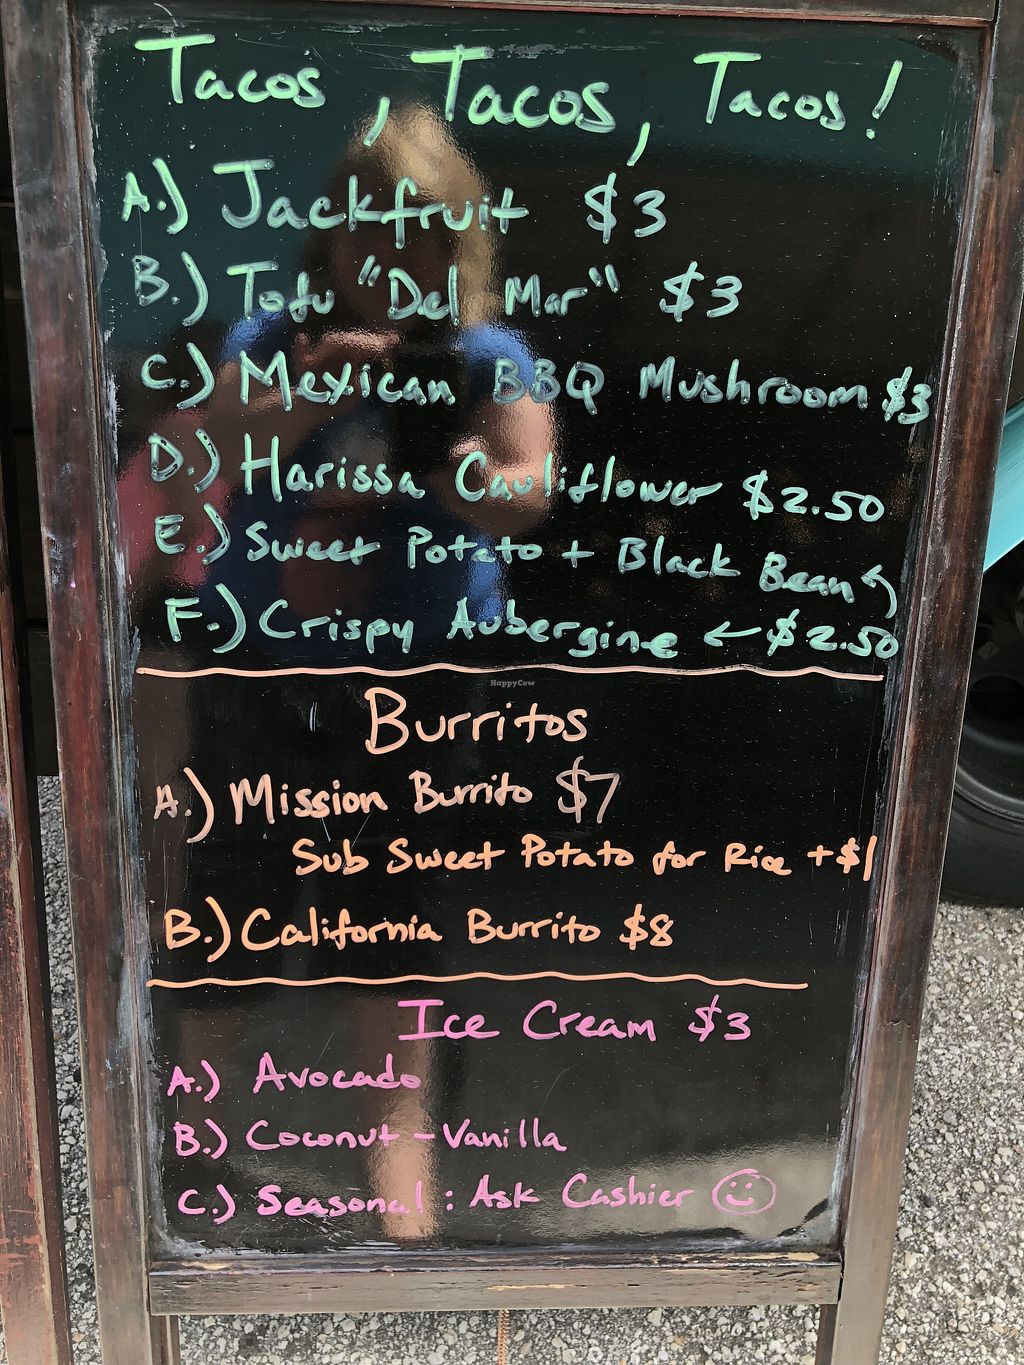 Tacos, Tacos, Tacos!
A.) Jackfruit $3
B.) Tofu "Del Mar" $3
C.) Mexican BBQ Mushroom $3
D.) Harissa Cauliflower $2.50
E.) Sweet Potato + Black Bean
F.) Crispy Aubergine ← $2.50
HappyCow
Burritos
A.) Mission Burrito $7
Sub Sweet Potato for Rice +$1
B.) California Burrito $8
Ice Cream $3
A.) Avocado
B.) Coconut - Vanilla
C.) Seasonal : Ask Cashier ☺